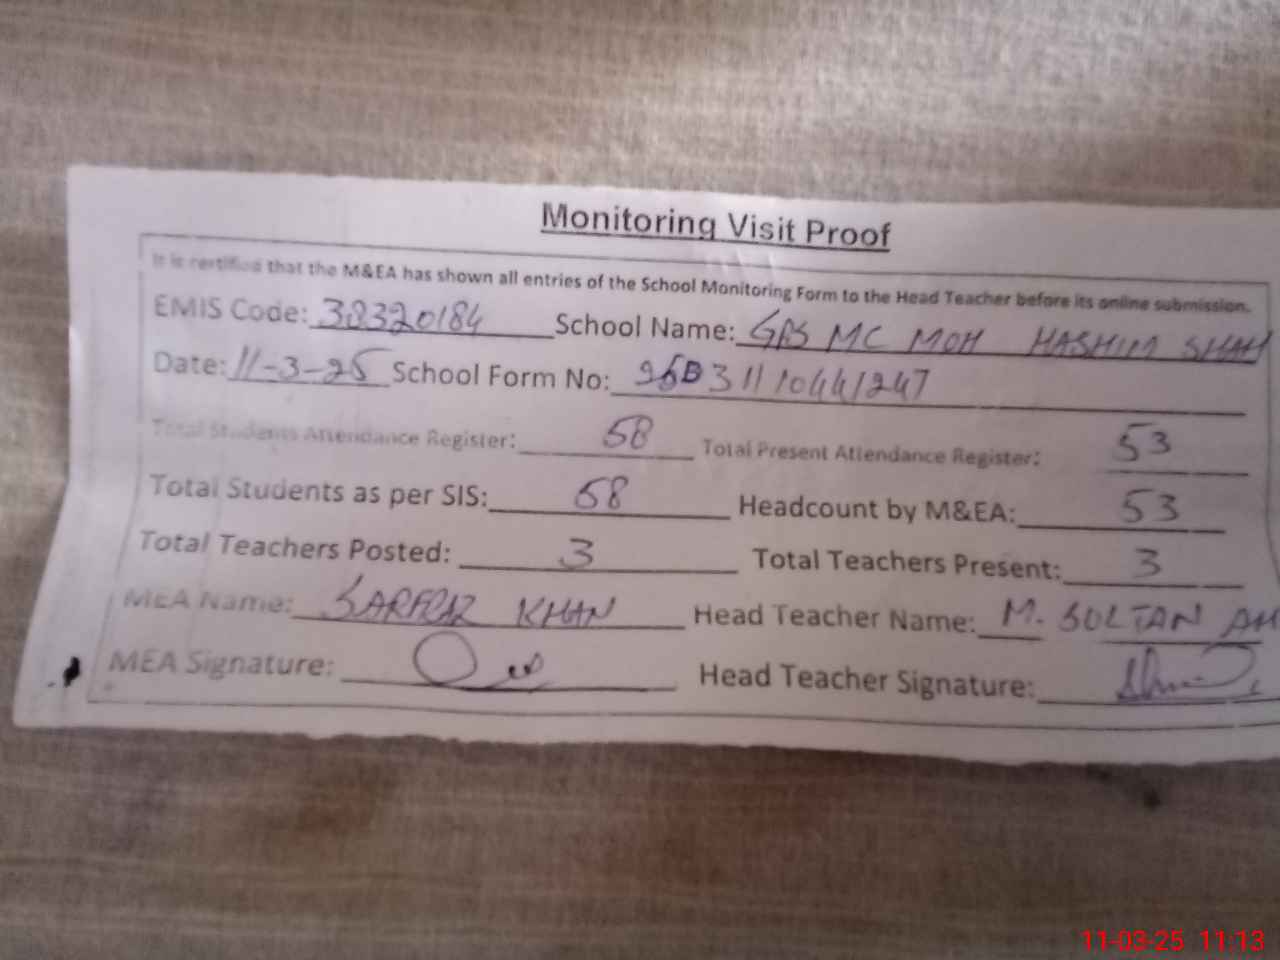 Monitoring Visit Proof
It is certified that the M&EA has shown all entries of the School Monitoring Form to the Head Teacher before its online submission.
EMIS Code: 38320184 School Name: GPS MC MOH HASHIM SHAH
Date: 11-3-25 School Form No:
Total Students Attendance Register: 58 Total Present Attendance Register: 53
Total Students as per SIS: 58 Headcount by M&EA: 53
Total Teachers Posted: 3 Total Teachers Present: 3
MEA Name: SARFRAZ KHAN Head Teacher Name: M. SULTAN AH
MEA Signature: Head Teacher Signature:
11-03-25 11:13